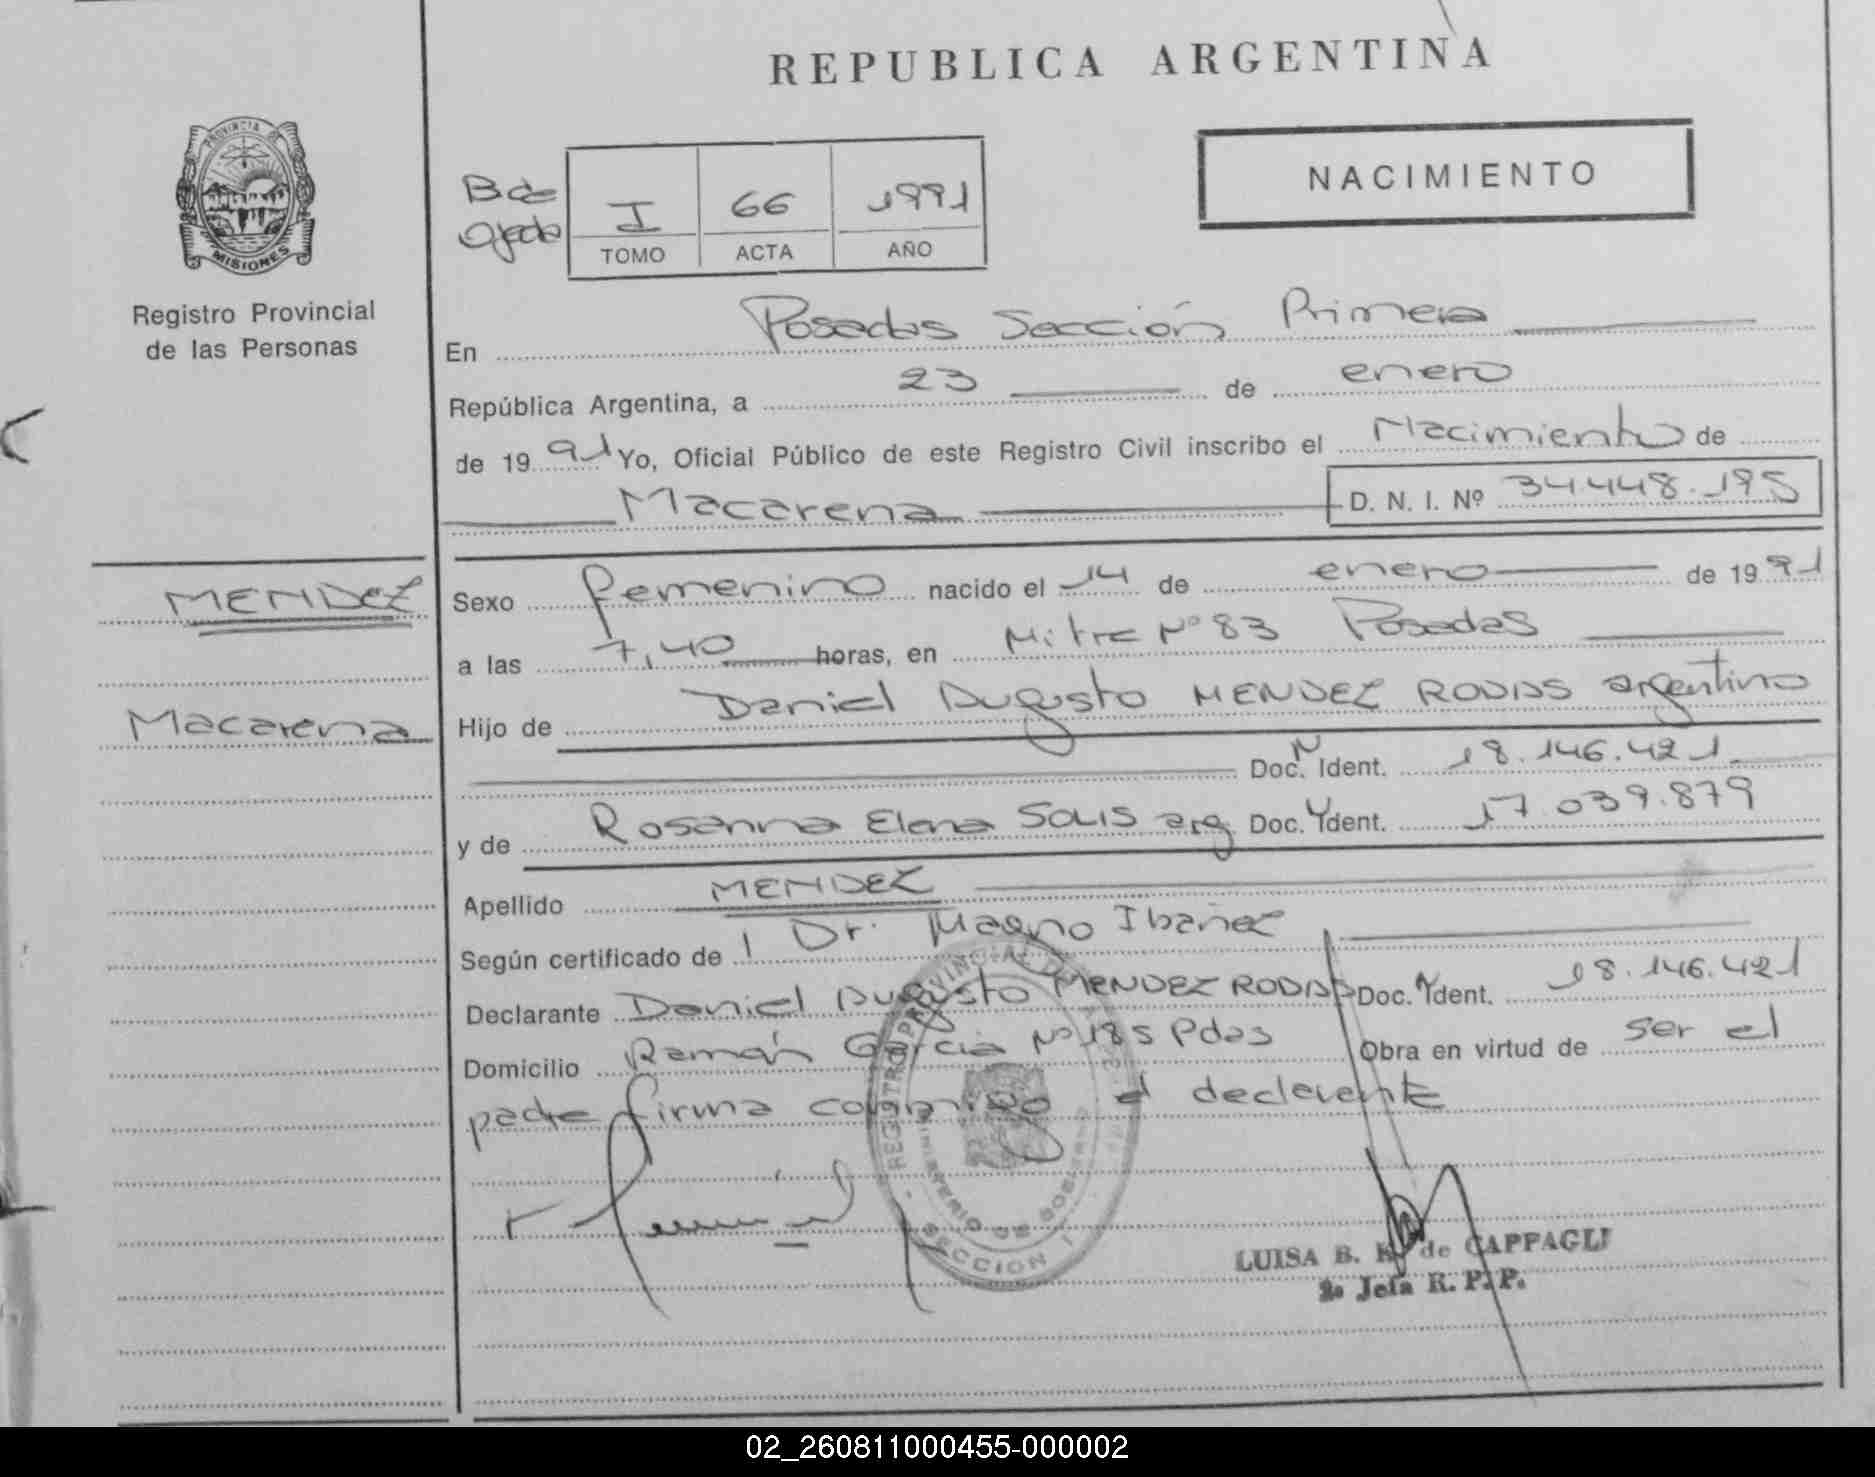 REPUBLICA ARGENTINA
PROVINCIA DE
MISIONES
Registro Provincial
de las Personas
NACIMIENTO
Bde
Ojeda
I 66 1991
TOMO ACTA AÑO
En Posadas Sección Primera
República Argentina, a 23 de enero
de 1991 Yo, Oficial Público de este Registro Civil inscribo el Nacimiento de
Macarena D. N. I. Nº 34.448.195
MENDEZ
Macarena
Sexo femenino nacido el 14 de enero de 1991
a las 7,40 horas, en Mitre Nº 83 Posadas
Hijo de Daniel Augusto MENDEZ RODAS argentino
Doc. N Ident. 18.146.421
y de Rosanna Elena SOLIS arg Doc. Ident. 17.039.879
Apellido MENDEZ
Según certificado de Dr. Magno Ibañez
Declarante Daniel Augusto MENDEZ RODAS Doc. Ident. 18.146.421
Domicilio Ramón Garcia Nº 185 Pdas Obra en virtud de ser el
padre firma conmigo el declarante
REGISTRO PROVINCIAL DE
MINISTERIO DE GOBIERNO
SECCION 1
LUISA B. K. de CAPPAGLI
2º Jefa R. P. P.
02_260811000455-000002